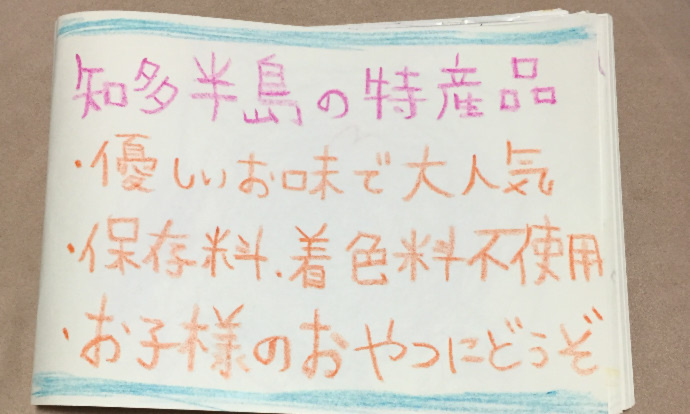 知多半島の特産品
・優しいお味で大人気
・保存料、着色料不使用
・お子様のおやつにどうぞ